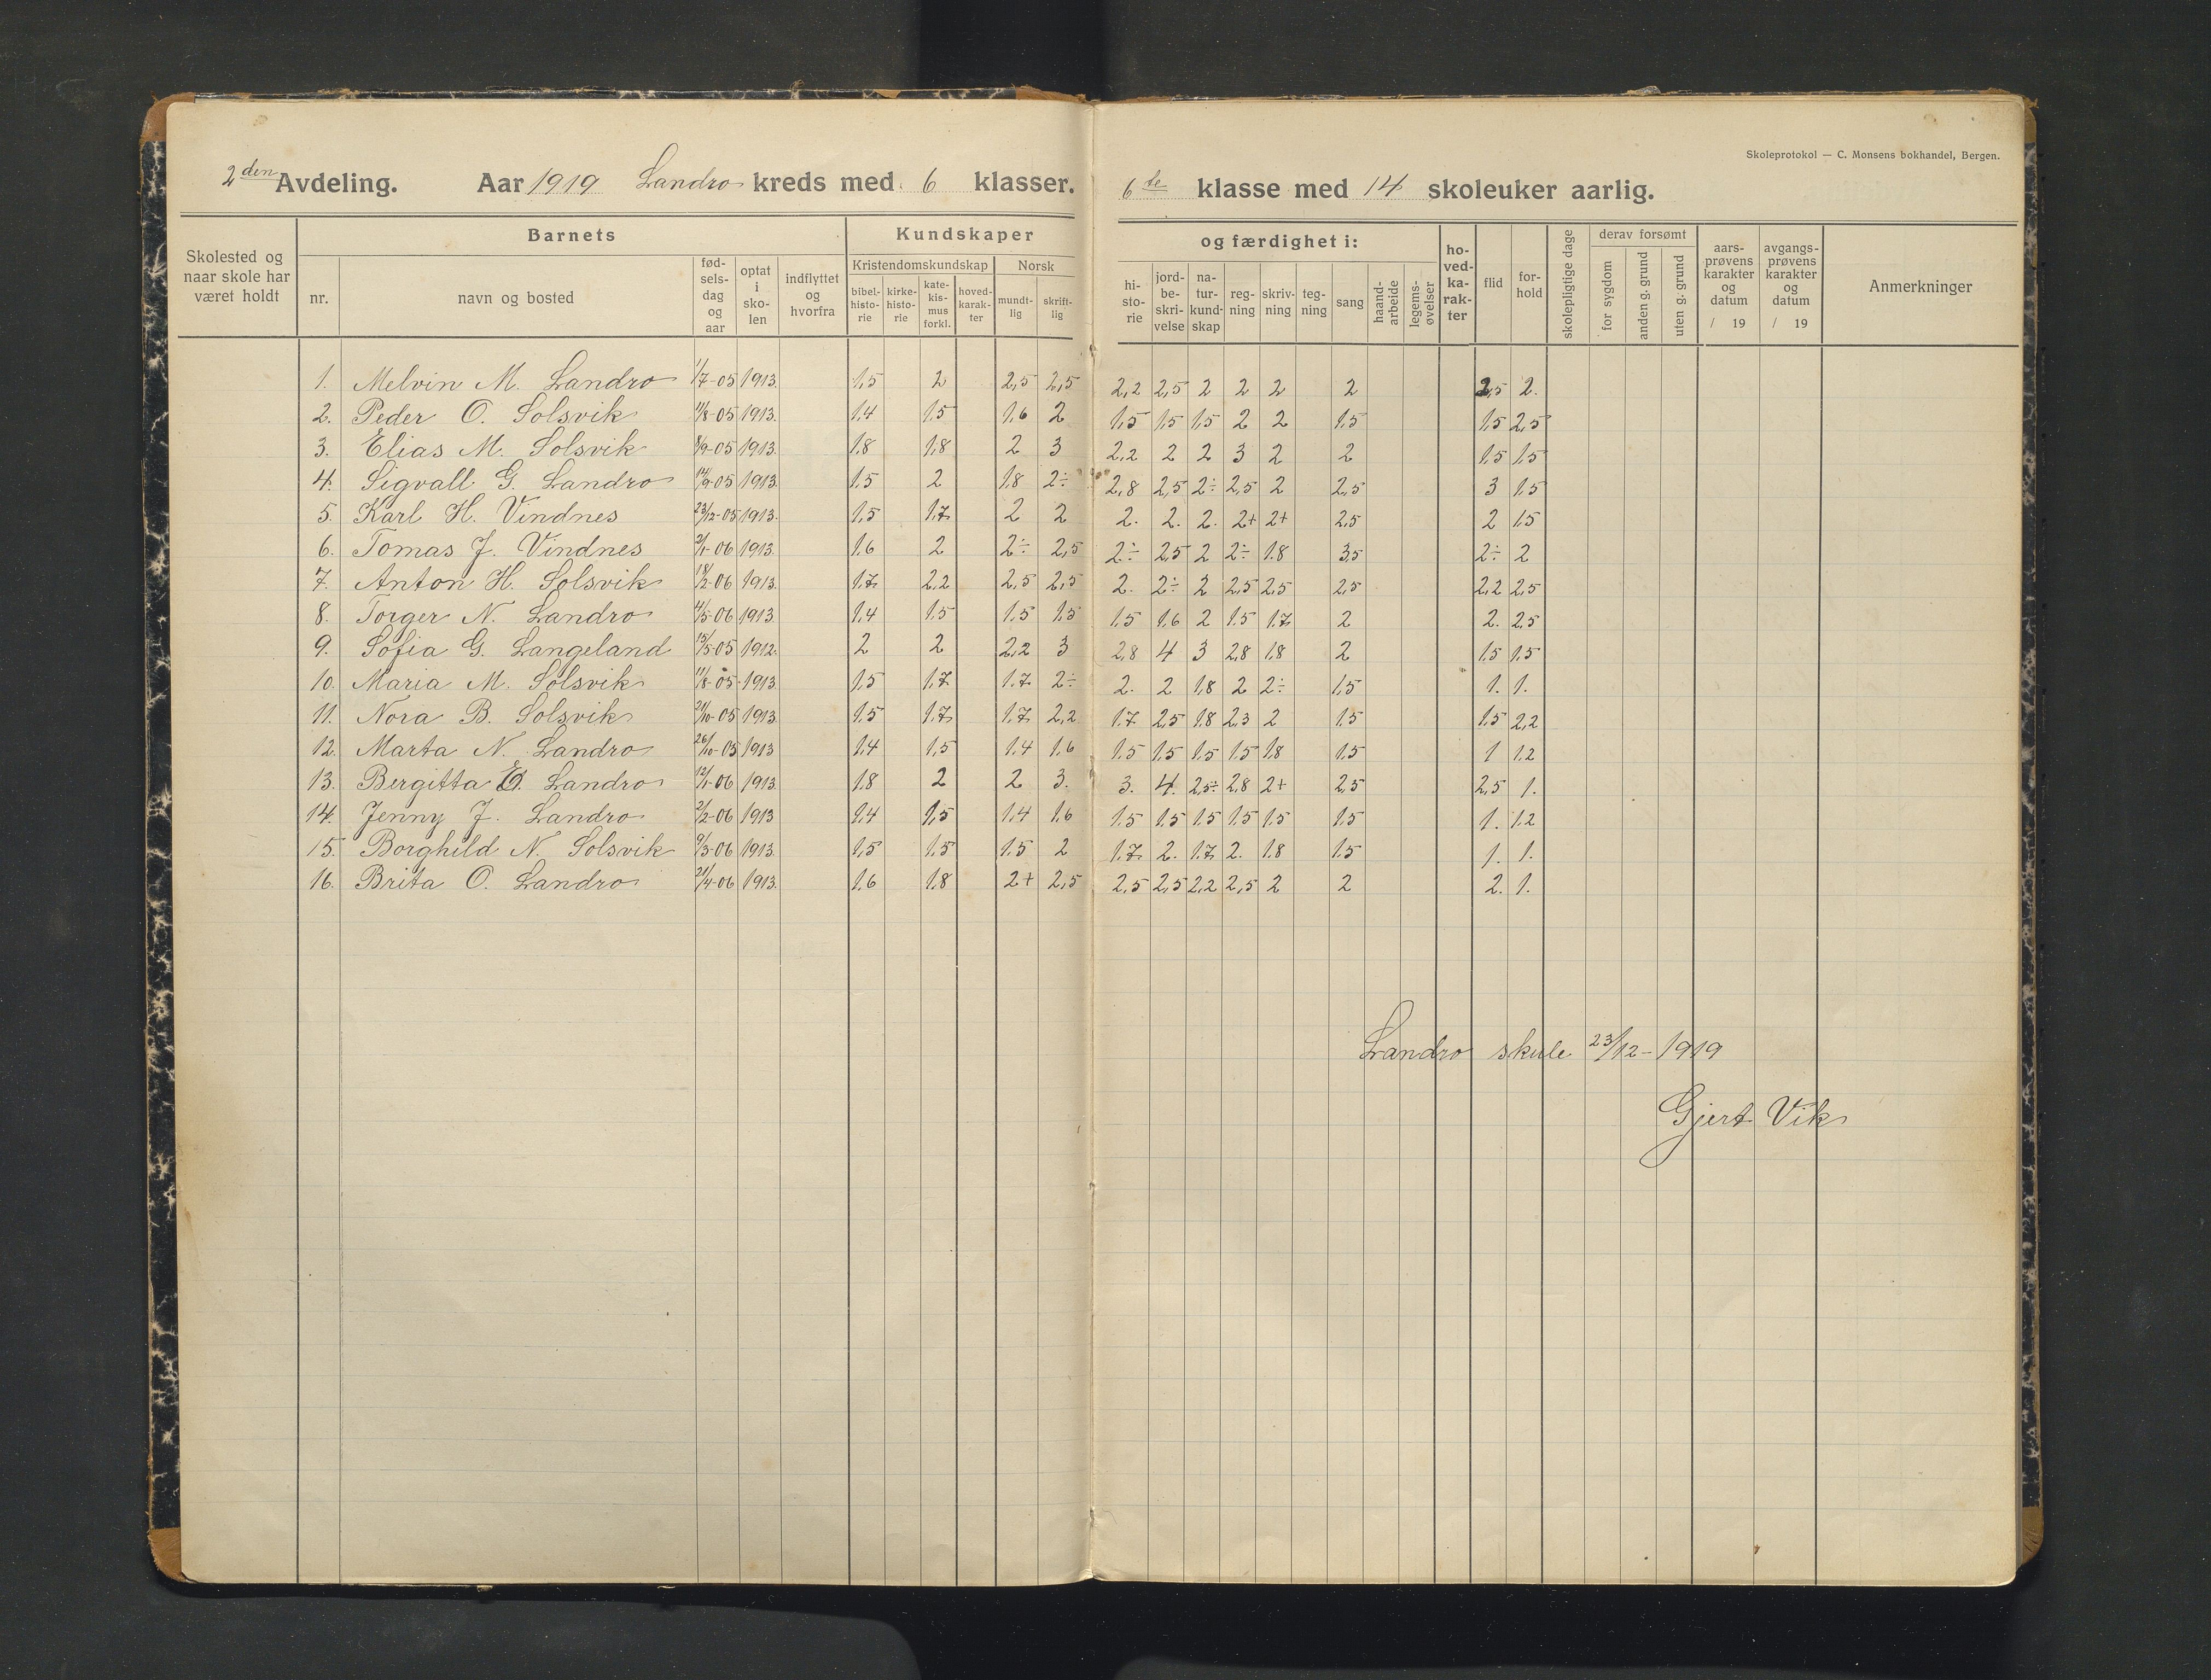 Skoleprotokol — C. Monsens bokhandel, Bergen.
2den Avdeling. Aar 1919 Landro kreds med 6 klasser. 6te klasse med 14 skoleuker aarlig.
Skolested og naar skole har været holdt
Barnets
nr.
navn og bosted
fødselsdag og aar
optat i skolen
indflyttet og hvorfra
Kundskaper og færdighet i:
Kristendomskundskap
bibelhistorie
kirkehistorie
katekismus forkl.
hovedkarakter
Norsk
mundtlig
skriftlig
historie
jordbeskrivelse
naturkundskap
regning
skrivning
tegning
sang
haandarbeide
legemsøvelser
hovedkarakter
flid
forhold
skolepligtige dage
derav forsømt
for sygdom
anden g. grund
uten g. grund
aarsprøvens karakter og datum / 19
avgangsprøvens karakter og datum / 19
Anmerkninger
1. Melvin M. Landro 1/7-05 1913. 1,5 2 2,5 2,5 2,2 2,5 2 2 2 2 2,5 2.
2. Peder O. Solsvik 11/8-05 1913. 1,4 1,5 1,6 2 1,5 1,5 1,5 2 2 1,5 1,5 2,5
3. Elias M. Solsvik 8/9-05 1913. 1,8 1,8 2 3 2,2 2 2 3 2 2 1,5 1,5
4. Sigvall G. Landro 14/9-05 1913. 1,5 2 1,8 2÷ 2,8 2,5 2÷ 2,5 2 2,5 3 1,5
5. Karl H. Vindnes 23/12-05 1913. 1,5 1,7 2 2 2. 2. 2. 2+ 2+ 2,5 2 1,5
6. Tomas J. Vindnes 2/1-06 1913. 1,6 2 2÷ 2,5 2÷ 2,5 2 2÷ 1,8 3,5 2÷ 2
7. Anton H. Solsvik 18/2-06 1913. 1,7 2,2 2,5 2,5 2. 2÷ 2 2,5 2,5 2,5 2,2 2,5
8. Torger N. Landro 4/5-06 1913. 1,4 1,5 1,5 1,5 1,5 1,6 2 1,5 1,7 2 2. 2,5
9. Sofia G. Langeland 15/5-05 1912. 2 2 2,2 3 2,8 4 3 2,8 1,8 2 1,5 1,5
10. Maria M. Solsvik 11/8-05 1913. 1,5 1,7 1,7 2÷ 2. 2 1,8 2 2÷ 1,5 1. 1.
11. Nora B. Solsvik 21/10-05 1913. 1,5 1,7 1,7 2,2 1,7 2,5 1,8 2,3 2 1,5 1,5 2,2
12. Marta N. Landro 26/10-05 1913 1,4 1,5 1,4 1,6 1,5 1,5 1,5 1,5 1,8 1,5 1 1,2
13. Bergitta Landro 12/1-06 1913. 1,8 2 2 3. 3. 4. 2,5÷ 2,8 2+ 2,5 2,5 1.
14. Jenny J. Landro 2/2-06 1913 1,4 1,5 1,4 1,6 1,5 1,5 1,5 1,5 1,5 1,5 1. 1,2
15. Borghild N. Solsvik 9/3-06 1913. 1,5 1,5 1,5 2 1,7 2. 1,7 2. 1,8 1,5 1. 1.
16. Brita O. Landro 21/4-06 1913. 1,6 1,8 2+ 2,5 2,5 2,5 2,2 2,5 2 2 2. 1.
Landro skule 23/12-1919
Gjert Vik